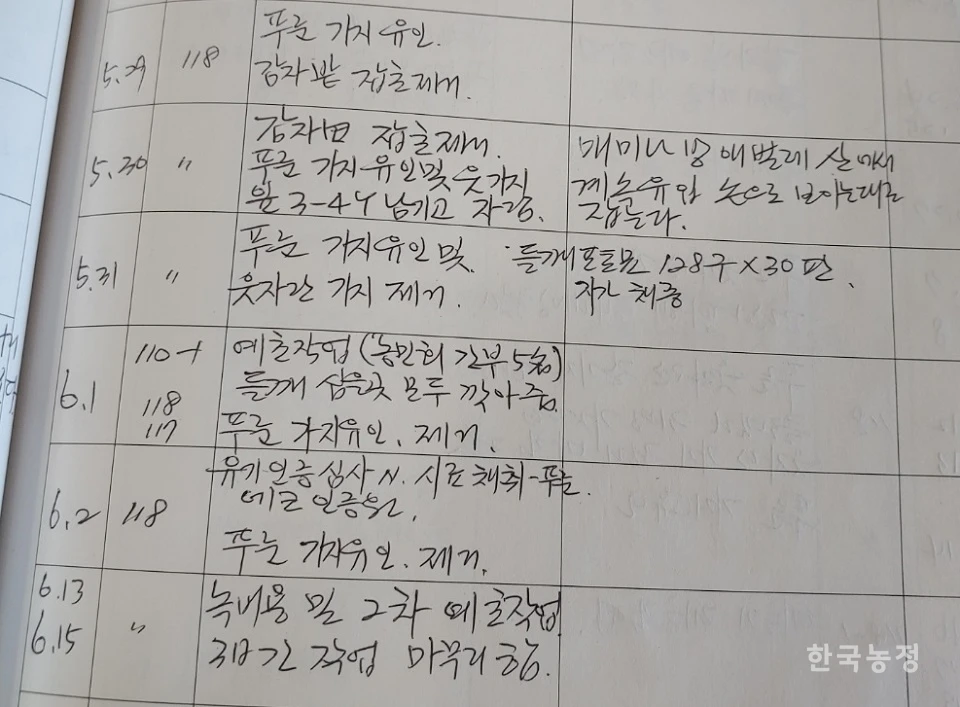 5.29 118 푸룬 가지유인.
감자밭 잡초제거.
5.30 〃 감자밭 잡초제거.
푸룬 가지유인 및 웃가지
원 3-4개 남기고 자름.
매미나방 애벌레 살
계속 유입 눈으로 보이는대로
잡는다.
5.31 〃 푸룬 가지유인 및.
웃자란 가지 제거.
들깨포트묘 128구×30판.
자가채종
6.1 110-1 예초작업(농민회 간부5명)
들깨 심을곳 모두 깎아줌.
118
117 푸룬 가지유인. 제거.
유기인증심사 시료채취-푸룬.
6.2 118 에코인증원.
푸룬 가지유인. 제거.
6.13 녹비용 밀 2차 예초작업.
6.15 〃 3일간 작업 마무리함.
한국농정